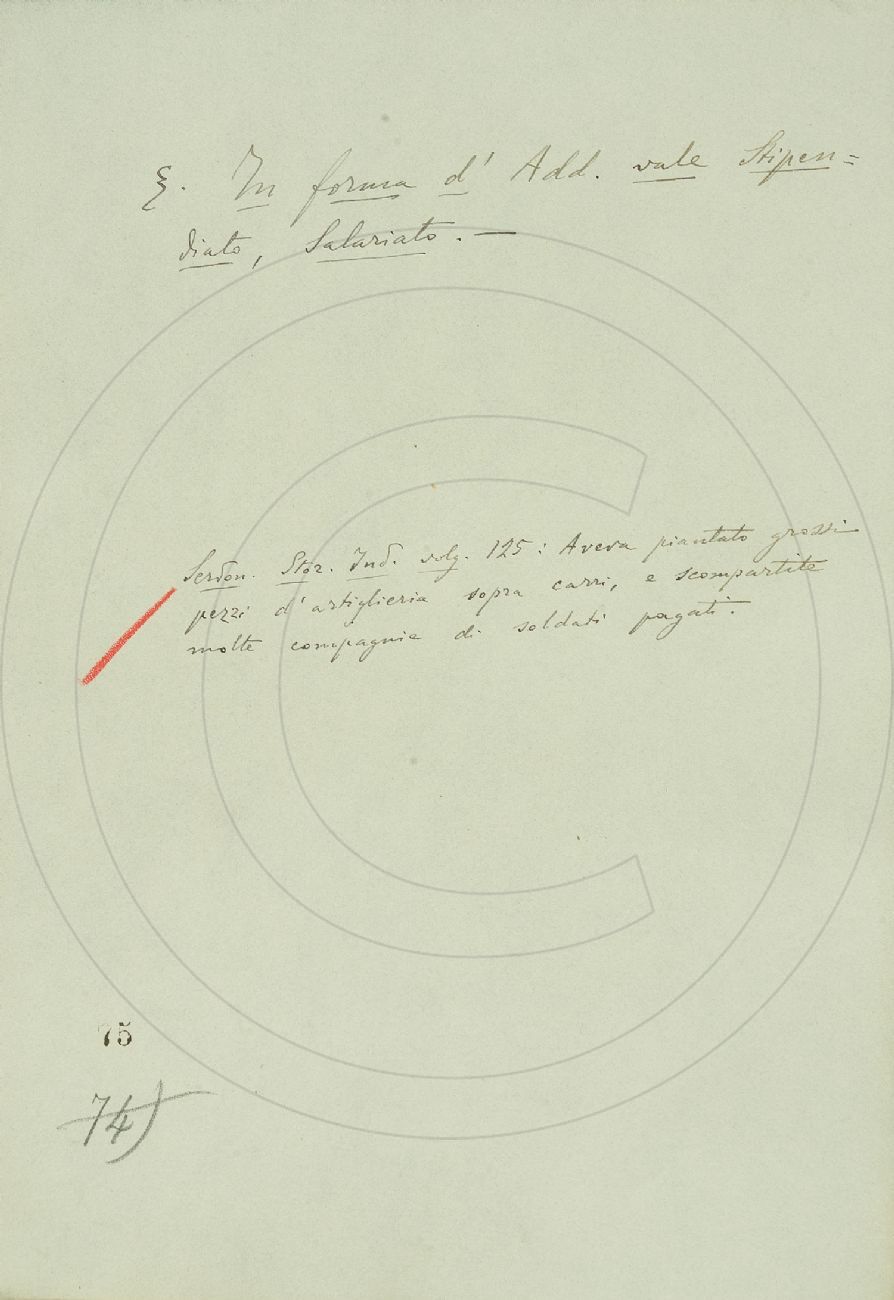 §. In forma d' Add. vale Stipen=
diato, Salariato. —
Serdon. Stor. Ind. volg. 125: Aveva piantato grossi
pezzi d'artiglieria sopra carri, e scompartite
molte compagnie di soldati pagati.
75
74)